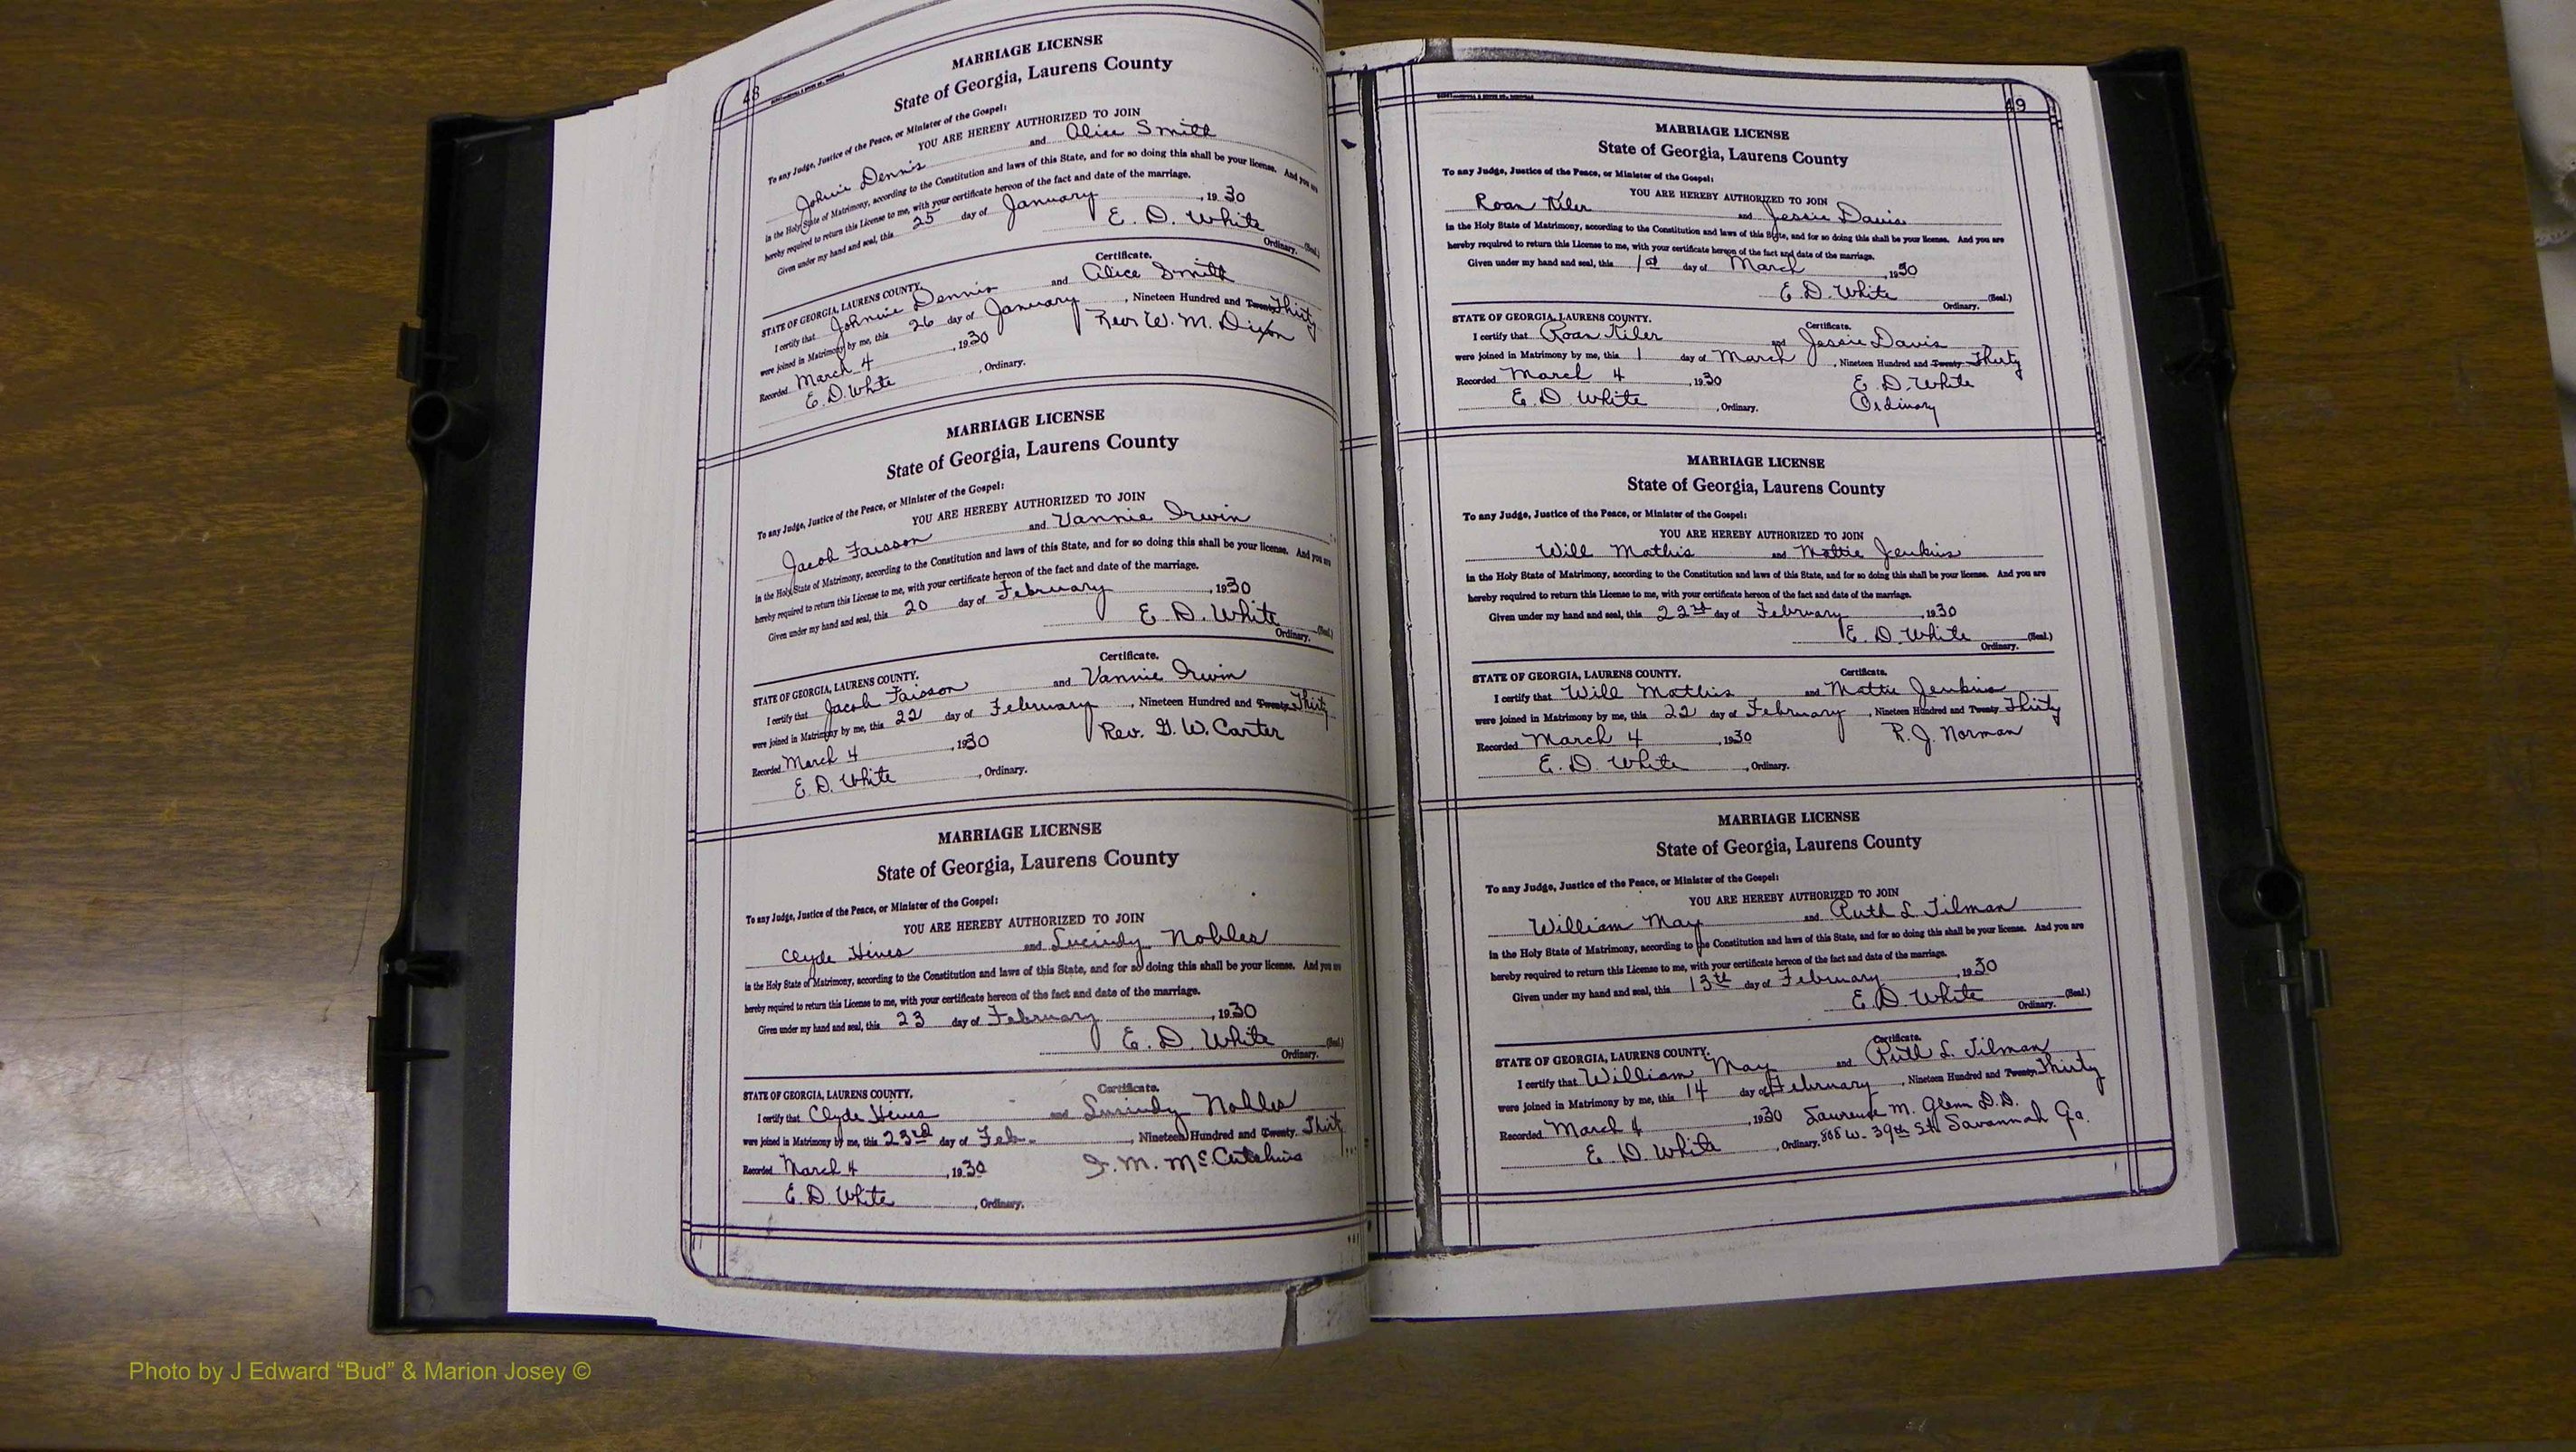 48
MARRIAGE LICENSE
State of Georgia, Laurens County
To any Judge, Justice of the Peace, or Minister of the Gospel:
YOU ARE HEREBY AUTHORIZED TO JOIN
Johnie Dennis and Alice Smith
in the Holy State of Matrimony, according to the Constitution and laws of this State, and for so doing this shall be your license. And you are
hereby required to return this License to me, with your certificate hereon of the fact and date of the marriage.
Given under my hand and seal, this 25 day of January, 1930
E. D. White (Seal.)
Ordinary.
Certificate.
STATE OF GEORGIA, LAURENS COUNTY.
I certify that Johnnie Dennis and Alice Smith
were joined in Matrimony by me, this 26 day of January, Nineteen Hundred and Twenty Thirty
Recorded March 4, 1930 Rev W. M. Dixon
E. D. White, Ordinary.
MARRIAGE LICENSE
State of Georgia, Laurens County
To any Judge, Justice of the Peace, or Minister of the Gospel:
YOU ARE HEREBY AUTHORIZED TO JOIN
Jacob Faisson and Vannie Irwin
in the Holy State of Matrimony, according to the Constitution and laws of this State, and for so doing this shall be your license. And you are
hereby required to return this License to me, with your certificate hereon of the fact and date of the marriage.
Given under my hand and seal, this 20 day of February, 1930
E. D. White (Seal.)
Ordinary.
Certificate.
STATE OF GEORGIA, LAURENS COUNTY.
I certify that Jacob Faisson and Vannie Irwin
were joined in Matrimony by me, this 22 day of February, Nineteen Hundred and Twenty Thirty
Recorded March 4, 1930 Rev. G. W. Carter
E. D. White, Ordinary.
MARRIAGE LICENSE
State of Georgia, Laurens County
To any Judge, Justice of the Peace, or Minister of the Gospel:
YOU ARE HEREBY AUTHORIZED TO JOIN
Clyde Hines and Lucindy Nobles
in the Holy State of Matrimony, according to the Constitution and laws of this State, and for so doing this shall be your license. And you are
hereby required to return this License to me, with your certificate hereon of the fact and date of the marriage.
Given under my hand and seal, this 23 day of February, 1930
E. D. White (Seal.)
Ordinary.
Certificate.
STATE OF GEORGIA, LAURENS COUNTY.
I certify that Clyde Hines and Lucindy Nobles
were joined in Matrimony by me, this 23rd day of Feb-, Nineteen Hundred and Twenty Thirt
Recorded March 4, 1930 M. McCutchins
E. D. White, Ordinary.
49
MARRIAGE LICENSE
State of Georgia, Laurens County
To any Judge, Justice of the Peace, or Minister of the Gospel:
YOU ARE HEREBY AUTHORIZED TO JOIN
Roan Kiler and Jessie Davis
in the Holy State of Matrimony, according to the Constitution and laws of this State, and for so doing this shall be your license. And you are
hereby required to return this License to me, with your certificate hereon of the fact and date of the marriage.
Given under my hand and seal, this 1st day of March, 1930
E. D. White (Seal.)
Ordinary.
STATE OF GEORGIA, LAURENS COUNTY. Certificate.
I certify that Roan Kiler and Jessie Davis
were joined in Matrimony by me, this 1 day of March, Nineteen Hundred and Twenty Thirty
Recorded March 4, 1930 E. D. White
E. D. White, Ordinary. Ordinary
MARRIAGE LICENSE
State of Georgia, Laurens County
To any Judge, Justice of the Peace, or Minister of the Gospel:
YOU ARE HEREBY AUTHORIZED TO JOIN
Will Mathis and Mattie Jenkins
in the Holy State of Matrimony, according to the Constitution and laws of this State, and for so doing this shall be your license. And you are
hereby required to return this License to me, with your certificate hereon of the fact and date of the marriage.
Given under my hand and seal, this 22nd day of February, 1930
E. D. White (Seal.)
Ordinary.
STATE OF GEORGIA, LAURENS COUNTY. Certificate.
I certify that Will Mathis and Mattie Jenkins
were joined in Matrimony by me, this 22 day of February, Nineteen Hundred and Twenty Thirty
Recorded March 4, 1930 R. J. Norman
E. D. White, Ordinary.
MARRIAGE LICENSE
State of Georgia, Laurens County
To any Judge, Justice of the Peace, or Minister of the Gospel:
YOU ARE HEREBY AUTHORIZED TO JOIN
William May and Ruth L Tilman
in the Holy State of Matrimony, according to the Constitution and laws of this State, and for so doing this shall be your license. And you are
hereby required to return this License to me, with your certificate hereon of the fact and date of the marriage.
Given under my hand and seal, this 13th day of February, 1930
E. D. White (Seal.)
Ordinary.
STATE OF GEORGIA, LAURENS COUNTY. Certificate.
I certify that William May and Ruth L. Tilman
were joined in Matrimony by me, this 14 day of February, Nineteen Hundred and Twenty Thirty
Recorded March 4, 1930 Lawrence M. Glenn D.D.
E. D. White, Ordinary. 808 W. 39th St. Savannah Ga.
Photo by J Edward “Bud” & Marion Josey ©